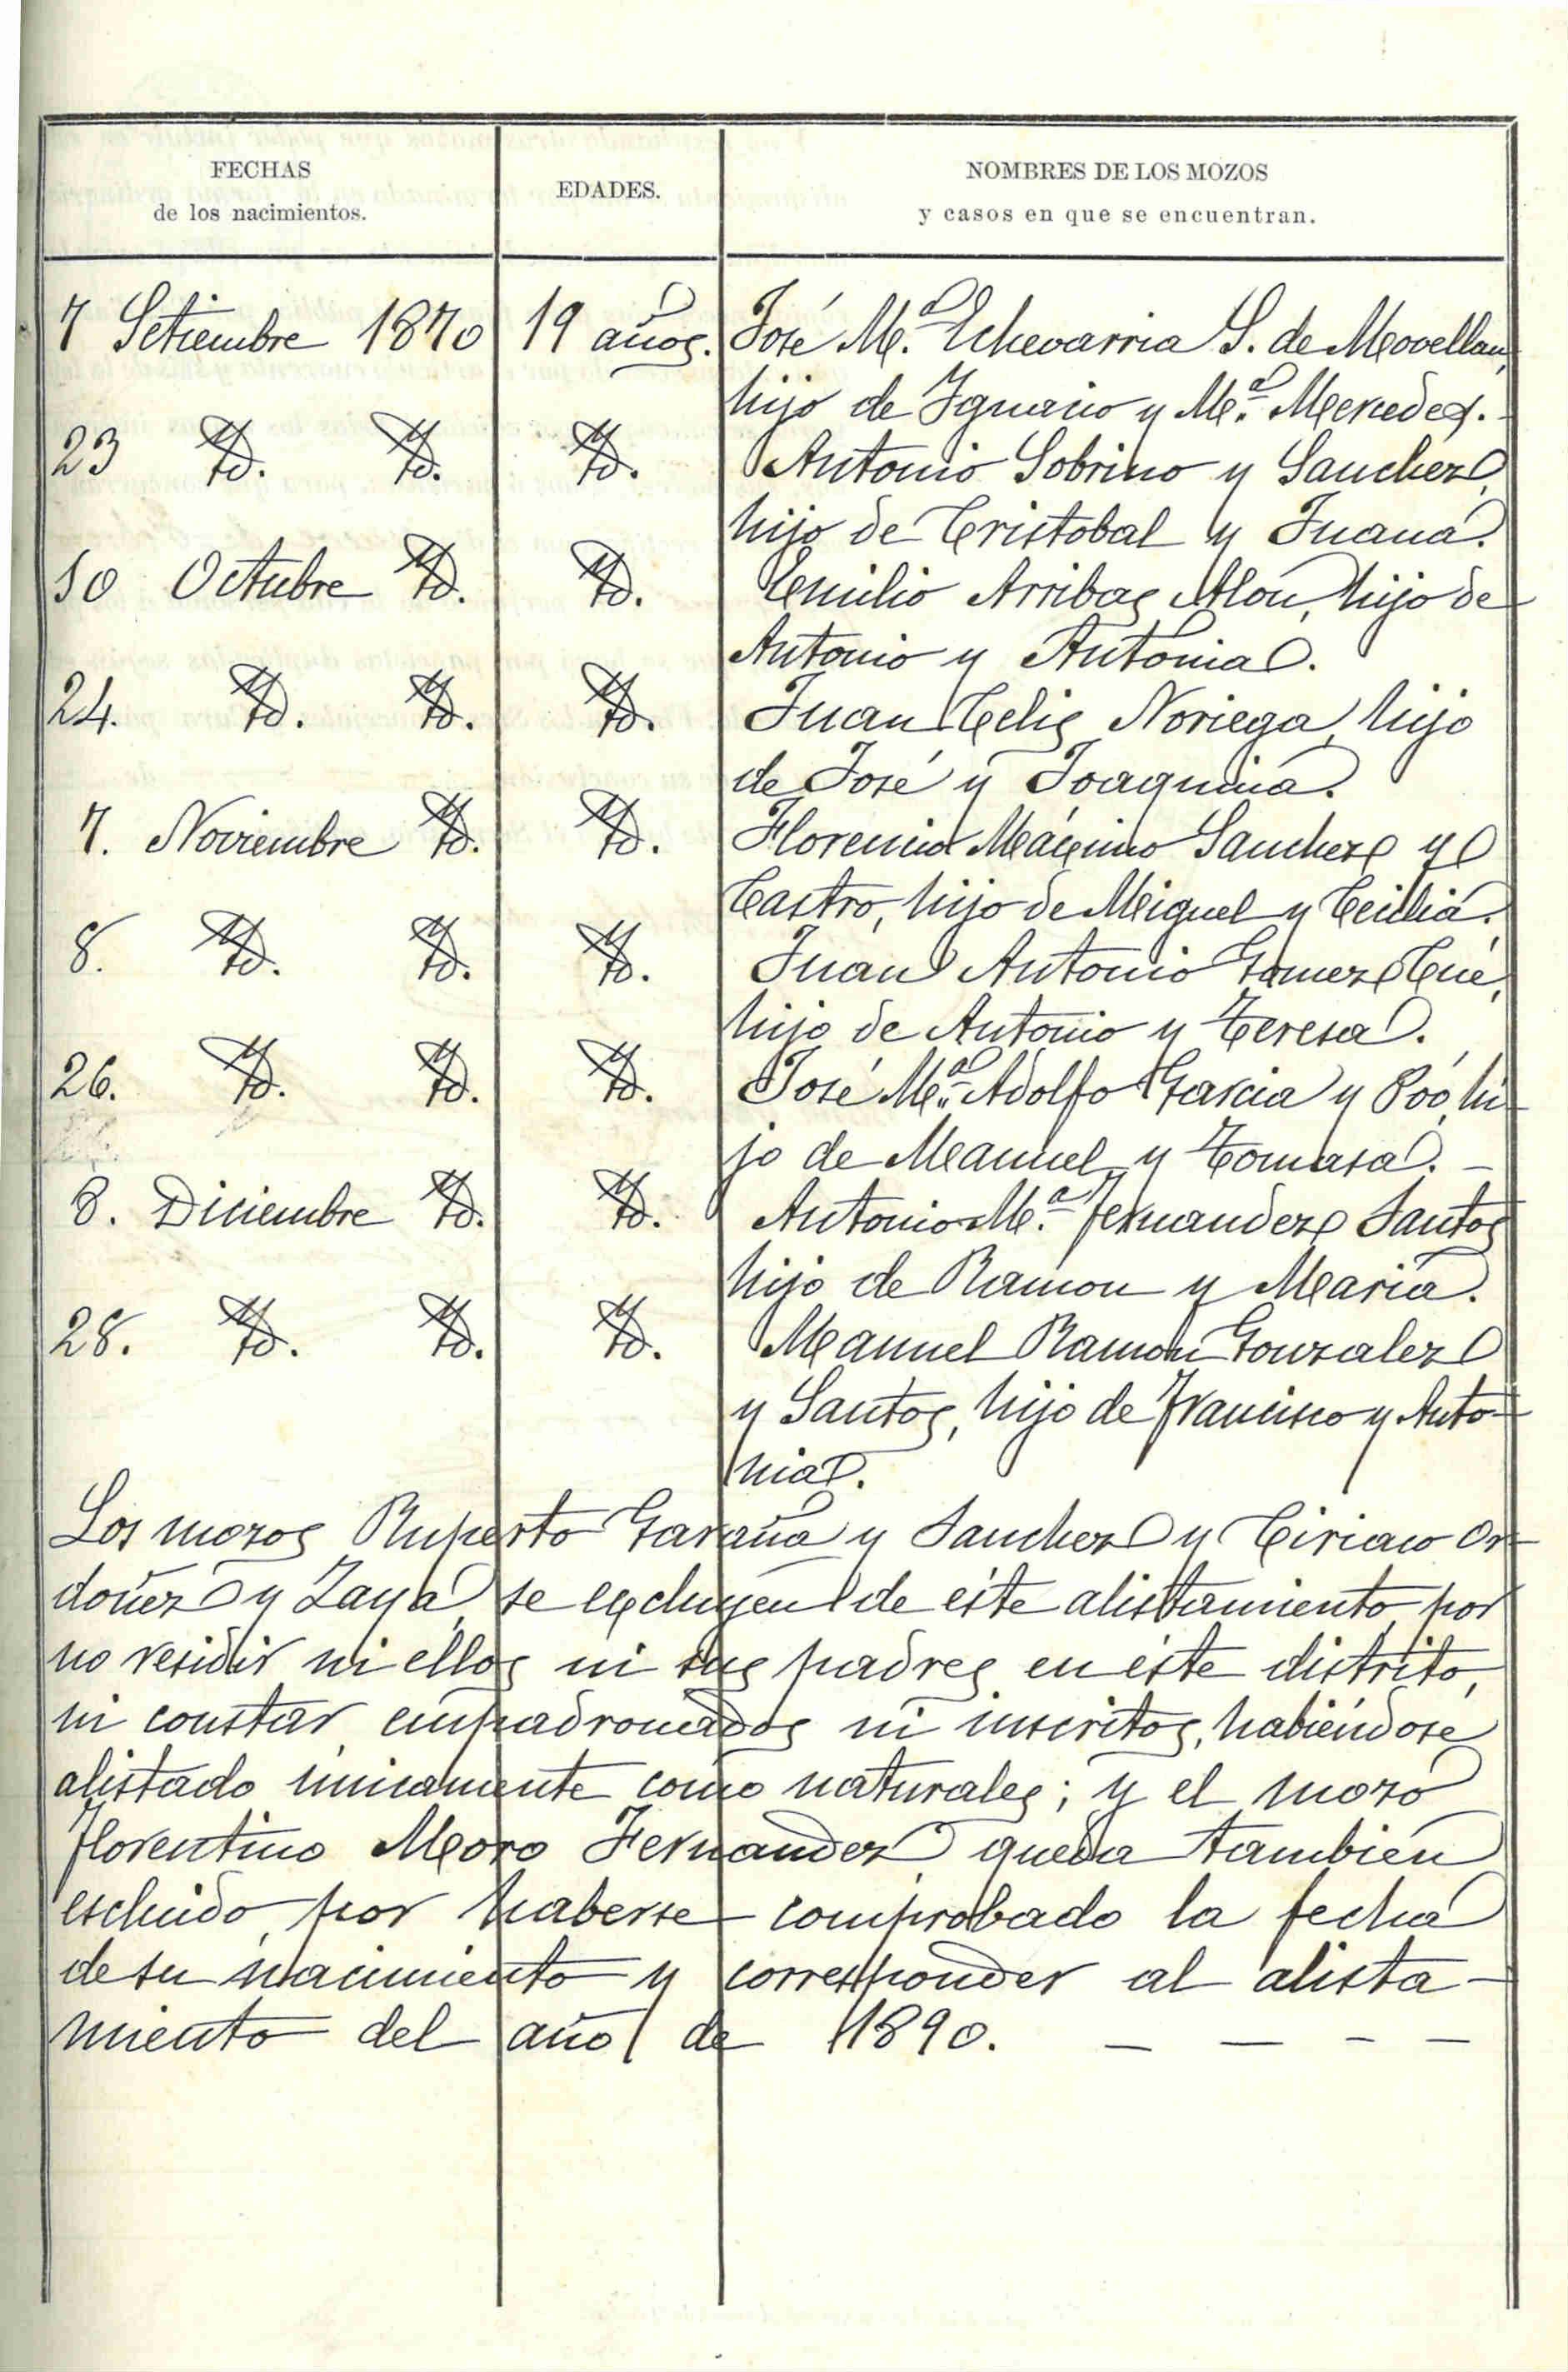 FECHAS
de los nacimientos.
EDADES.
NOMBRES DE LOS MOZOS
y casos en que se encuentran.
7 Setiembre 1870 19 años. José M.ª Echevarria S. de Movellan,
hijo de Ignacio y M.ª Mercedes.
23 Yd. Yd. Yd. Antonio Sobrino y Sanchez,
hijo de Cristobal y Juana.
10 Octubre Yd. Yd. Emilio Arribas Alou, hijo de
Antonio y Antonia.
24. Yd. Yd. Yd. Juan Celis Noriega, hijo
de José y Joaquina.
7. Noviembre Yd. Yd. Florencio Máximo Sanchez y
Castro, hijo de Miguel y Cecilia.
8. Yd. Yd. Yd. Juan Antonio Gomez Cué,
hijo de Antonio y Teresa.
26. Yd. Yd. Yd. José M.ª Adolfo Garcia y Póo, hi
jo de Manuel y Tomasa. -
8. Diciembre Yd. Yd. Antonio M.ª Fernandez Santos
hijo de Ramon y Maria.
28. Yd. Yd. Yd. Manuel Ramon Gonzalez
y Santos, hijo de Francisco y Anto-
nia.
Los mozos Ruperto Garaña y Sanchez y Ciriaco Or-
doñez y Zaya, se excluyen de éste alistamiento por
no residir ni ellos ni sus padres en éste distrito,
ni constar empadronados ni inscritos, habiéndose
alistado únicamente como naturales; y el mozo
Florentino Moro Fernandez queda tambien
escluido, por haberse comprobado la fecha
de su nacimiento y corresponder al alista-
miento del año de 1890. — — - —